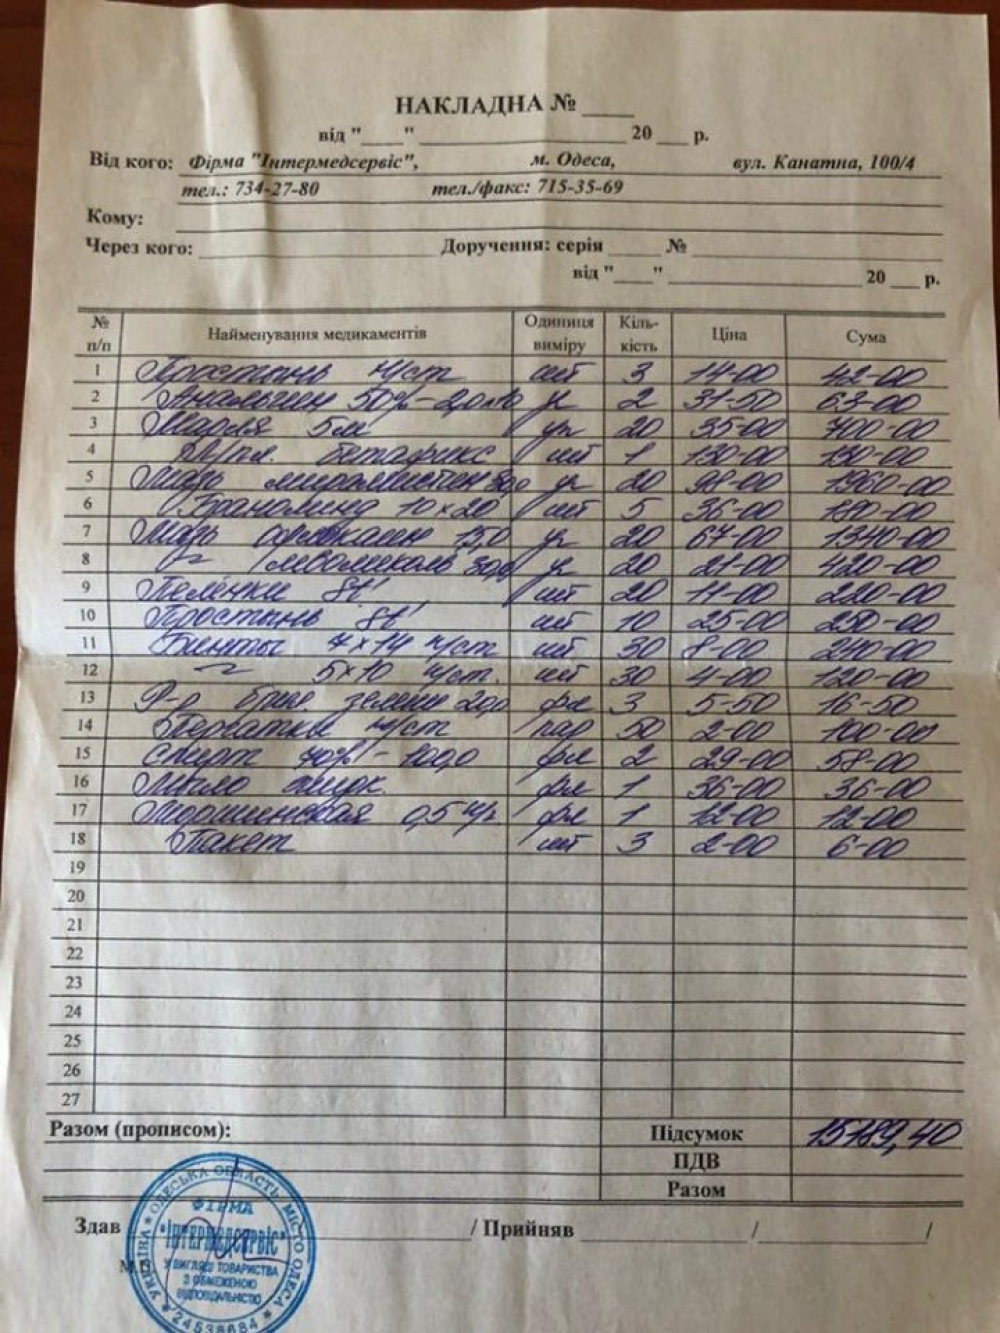 НАКЛАДНА № ____
від "____" ____________________ 20 ___ р.
Від кого: Фірма "Інтермедсервіс", м. Одеса, вул. Канатна, 100/4
тел.: 734-27-80 тел./факс: 715-35-69
Кому:
Через кого: ____________________ Доручення: серія _____ № ____________________
від "____" ____________________ 20 ___ р.
№ п/п Найменування медикаментів Одиниця виміру Кіль-кість Ціна Сума
1 Простынь н/ст шт 3 14-00 42-00
2 Анальгин 50%-2,0 уп 2 31-50 63-00
3 Марля 5м уп 20 35-00 700-00
4 бетафикс шт 1 130-00 130-00
5 Мазь уп 20 98-00 1960-00
6 Бранолинд 10×20 шт 5 36-00 180-00
7 Мазь офлокаин 15,0 уп 20 67-00 1340-00
8 левомиколь 30,0 уп 20 21-00 420-00
9 Пелёнки шт 20 11-00 220-00
10 Простынь шт 10 25-00 250-00
11 Бинты 7×14 н/ст шт 30 8-00 240-00
12 5×10 н/ст. шт 30 4-00 120-00
13 Р-р брил зелени 20,0 фл 3 5-50 16-50
14 Перчатки н/ст пар 50 2-00 100-00
15 спирт 70%-100,0 фл 2 29-00 58-00
16 Мыло жидк. фл 1 36-00 36-00
17 Моршинская 0,5 фл 1 12-00 12-00
18 Пакет шт 3 2-00 6-00
19
20
21
22
23
24
25
26
27
Разом (прописом): Підсумок 15189,40
ПДВ
Разом
Здав ____________________ / Прийняв ____________________ / ____________________ /
УКРАЇНА * ОДЕСЬКА ОБЛАСТЬ, МІСТО ОДЕСА *
ФІРМА
"ІНТЕРМЕДСЕРВІС"
У ВИГЛЯДІ ТОВАРИСТВА
З ОБМЕЖЕНОЮ
ВІДПОВІДАЛЬНІСТЮ
* 24538684 *